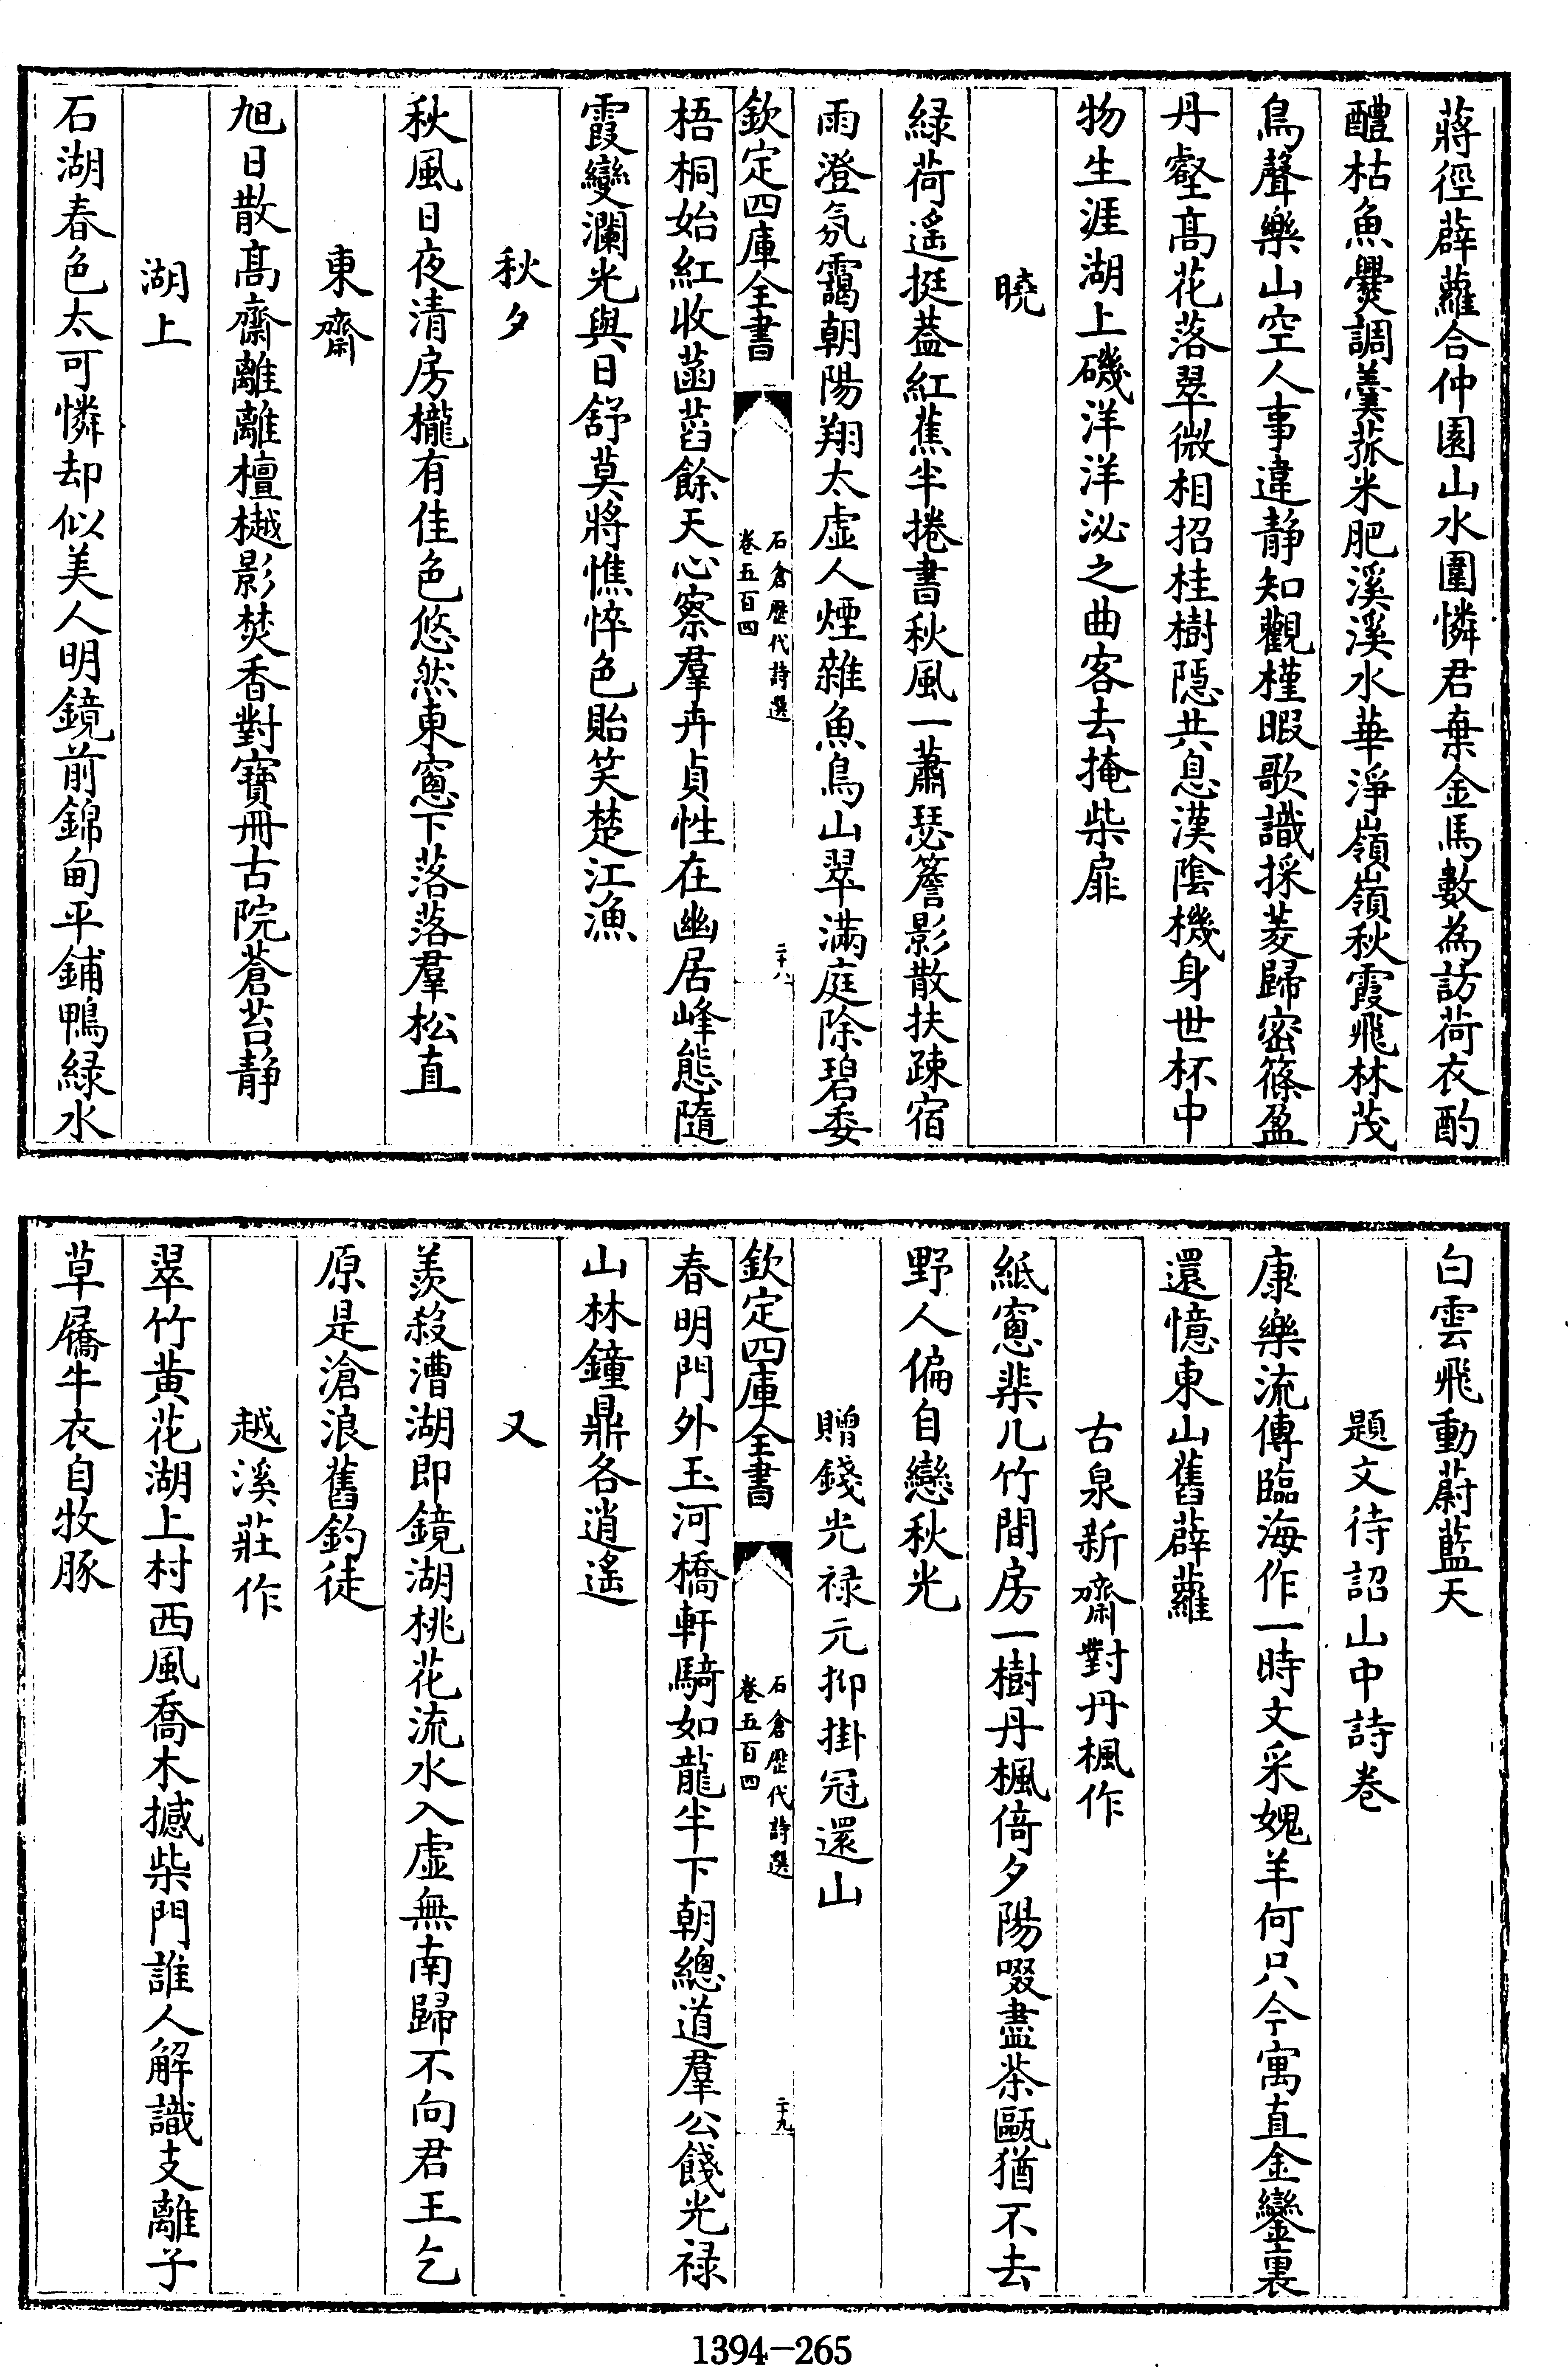 蔣徑薜蘿合仲園山水圍憐君棄金馬數為訪荷衣酌
醴枯魚㸑調羹菰米肥溪溪水華淨嶺嶺秋霞飛林茂
鳥聲樂山空人事違静知觀槿暇歌識採菱歸密篠盈
丹壑高花落翠微相招桂樹隠共息漢隂機身世杯中
物生涯湖上磯洋洋泌之曲客去掩柴扉
曉
緑荷遙挺葢紅蕉半捲書秋風一蕭瑟簷影散扶疎宿
雨澄氛靄朝陽翔太虚人煙雜魚鳥山翠滿庭除碧委
欽定四庫全書
石倉歴代詩選
卷五百四
二十八
梧桐始紅收菡萏餘天心察羣卉貞性在幽居峰態隨
霞變瀾光與日舒莫將憔悴色貽笑楚江漁
秋夕
秋風日夜清房櫳有佳色悠然東窻下落落羣松直
東齋
旭日散高齋離離檀樾影焚香對寶冊古院蒼苔静
湖上
石湖春色太可憐却似美人明鏡前錦甸平鋪鴨緑水
白雲飛動蔚藍天
題文待詔山中詩卷
康樂流傳臨海作一時文采媿羊何只今寓直金鑾裏
還憶東山舊薜蘿
古泉新齋對丹楓作
紙窻棐几竹間房一樹丹楓倚夕陽啜盡茶甌猶不去
野人偏自戀秋光
贈錢光禄元抑掛冠還山
欽定四庫全書
石倉歴代詩選
卷五百四
二十九
春明門外玉河橋軒騎如龍半下朝總道羣公餞光禄
山林鐘鼎各逍遙
又
羨殺漕湖即鏡湖桃花流水入虚無南歸不向君王乞
原是滄浪舊釣徒
越溪莊作
翠竹黄花湖上村西風喬木撼柴門誰人解識支離子
草屩牛衣自牧豚
1394-265